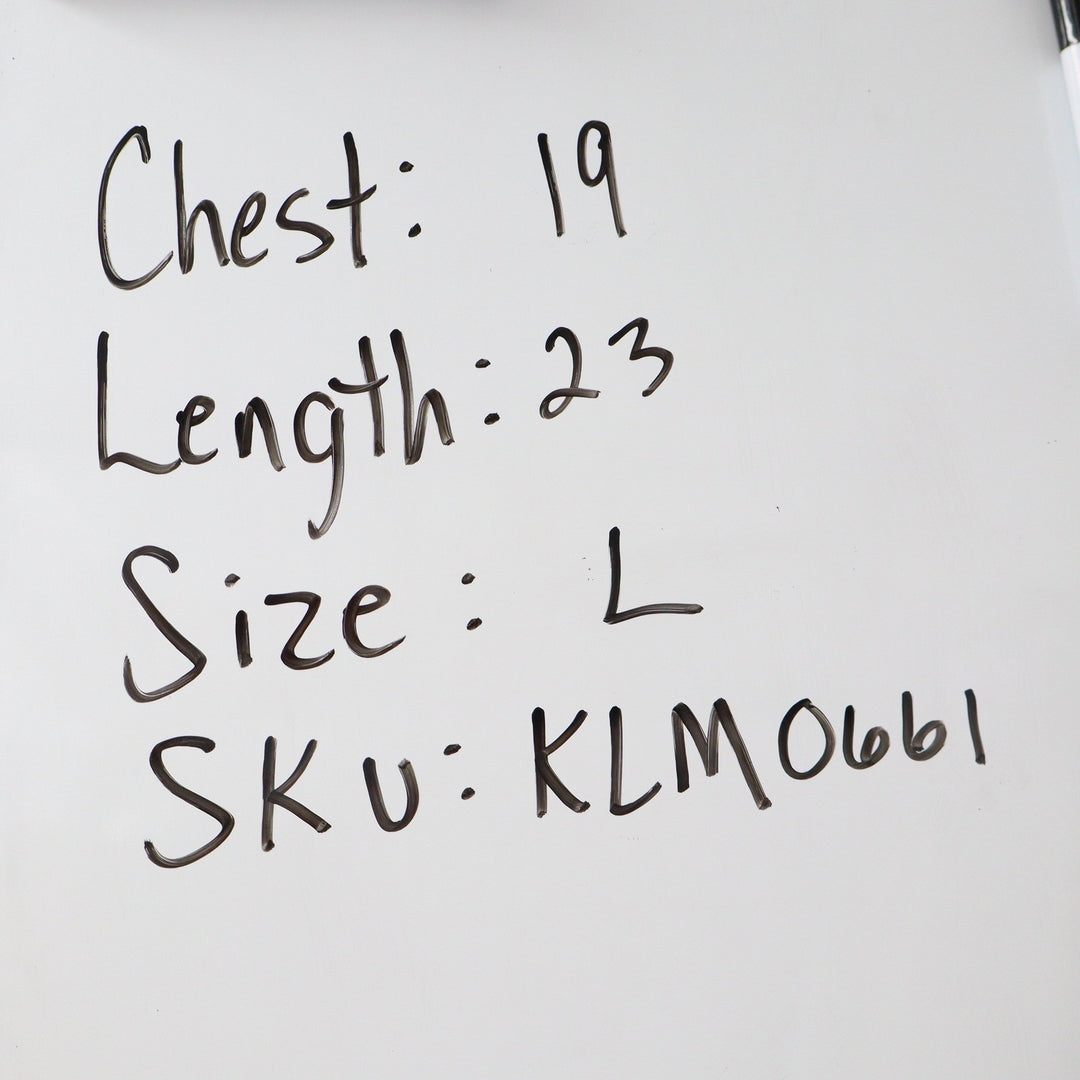 Chest: 19
Length: 23
Size: L
SKU: KLM0661